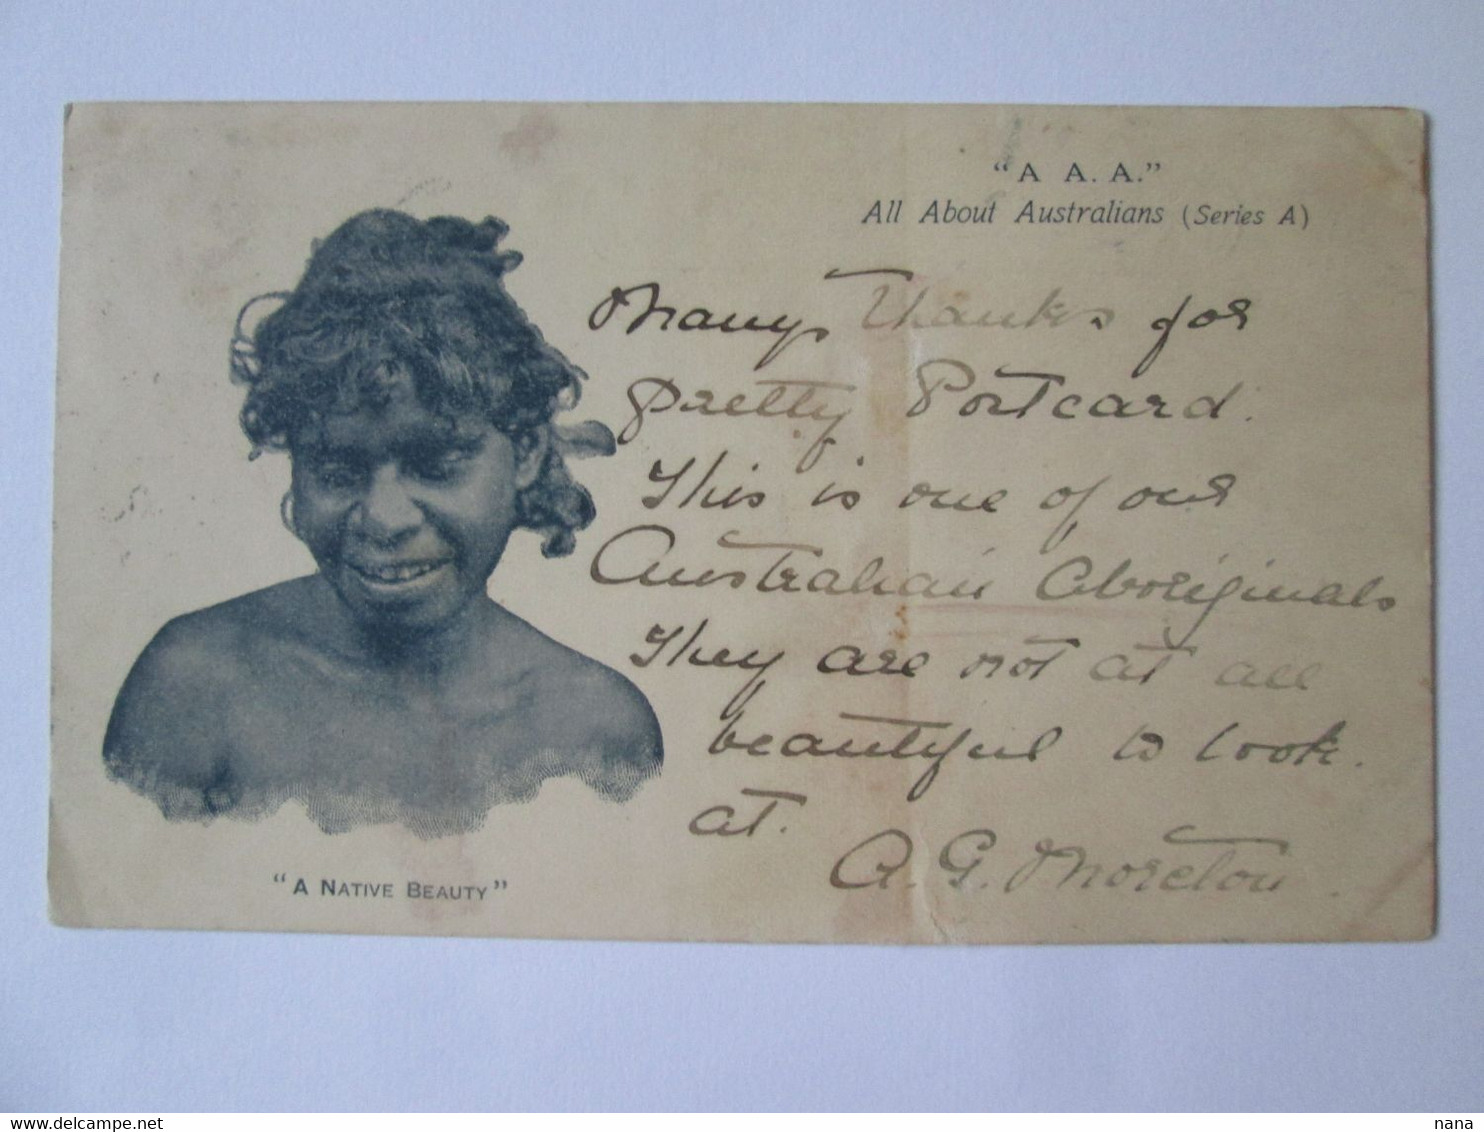 “A A. A.”
All About Australians (Series A)
Many Thanks for
pretty Postcard.
This is one of our
Australian Aboriginals
They are not at all
beautiful to look.
at.
A. G. Moreton.
“A NATIVE BEAUTY”
delcampe.net
nana